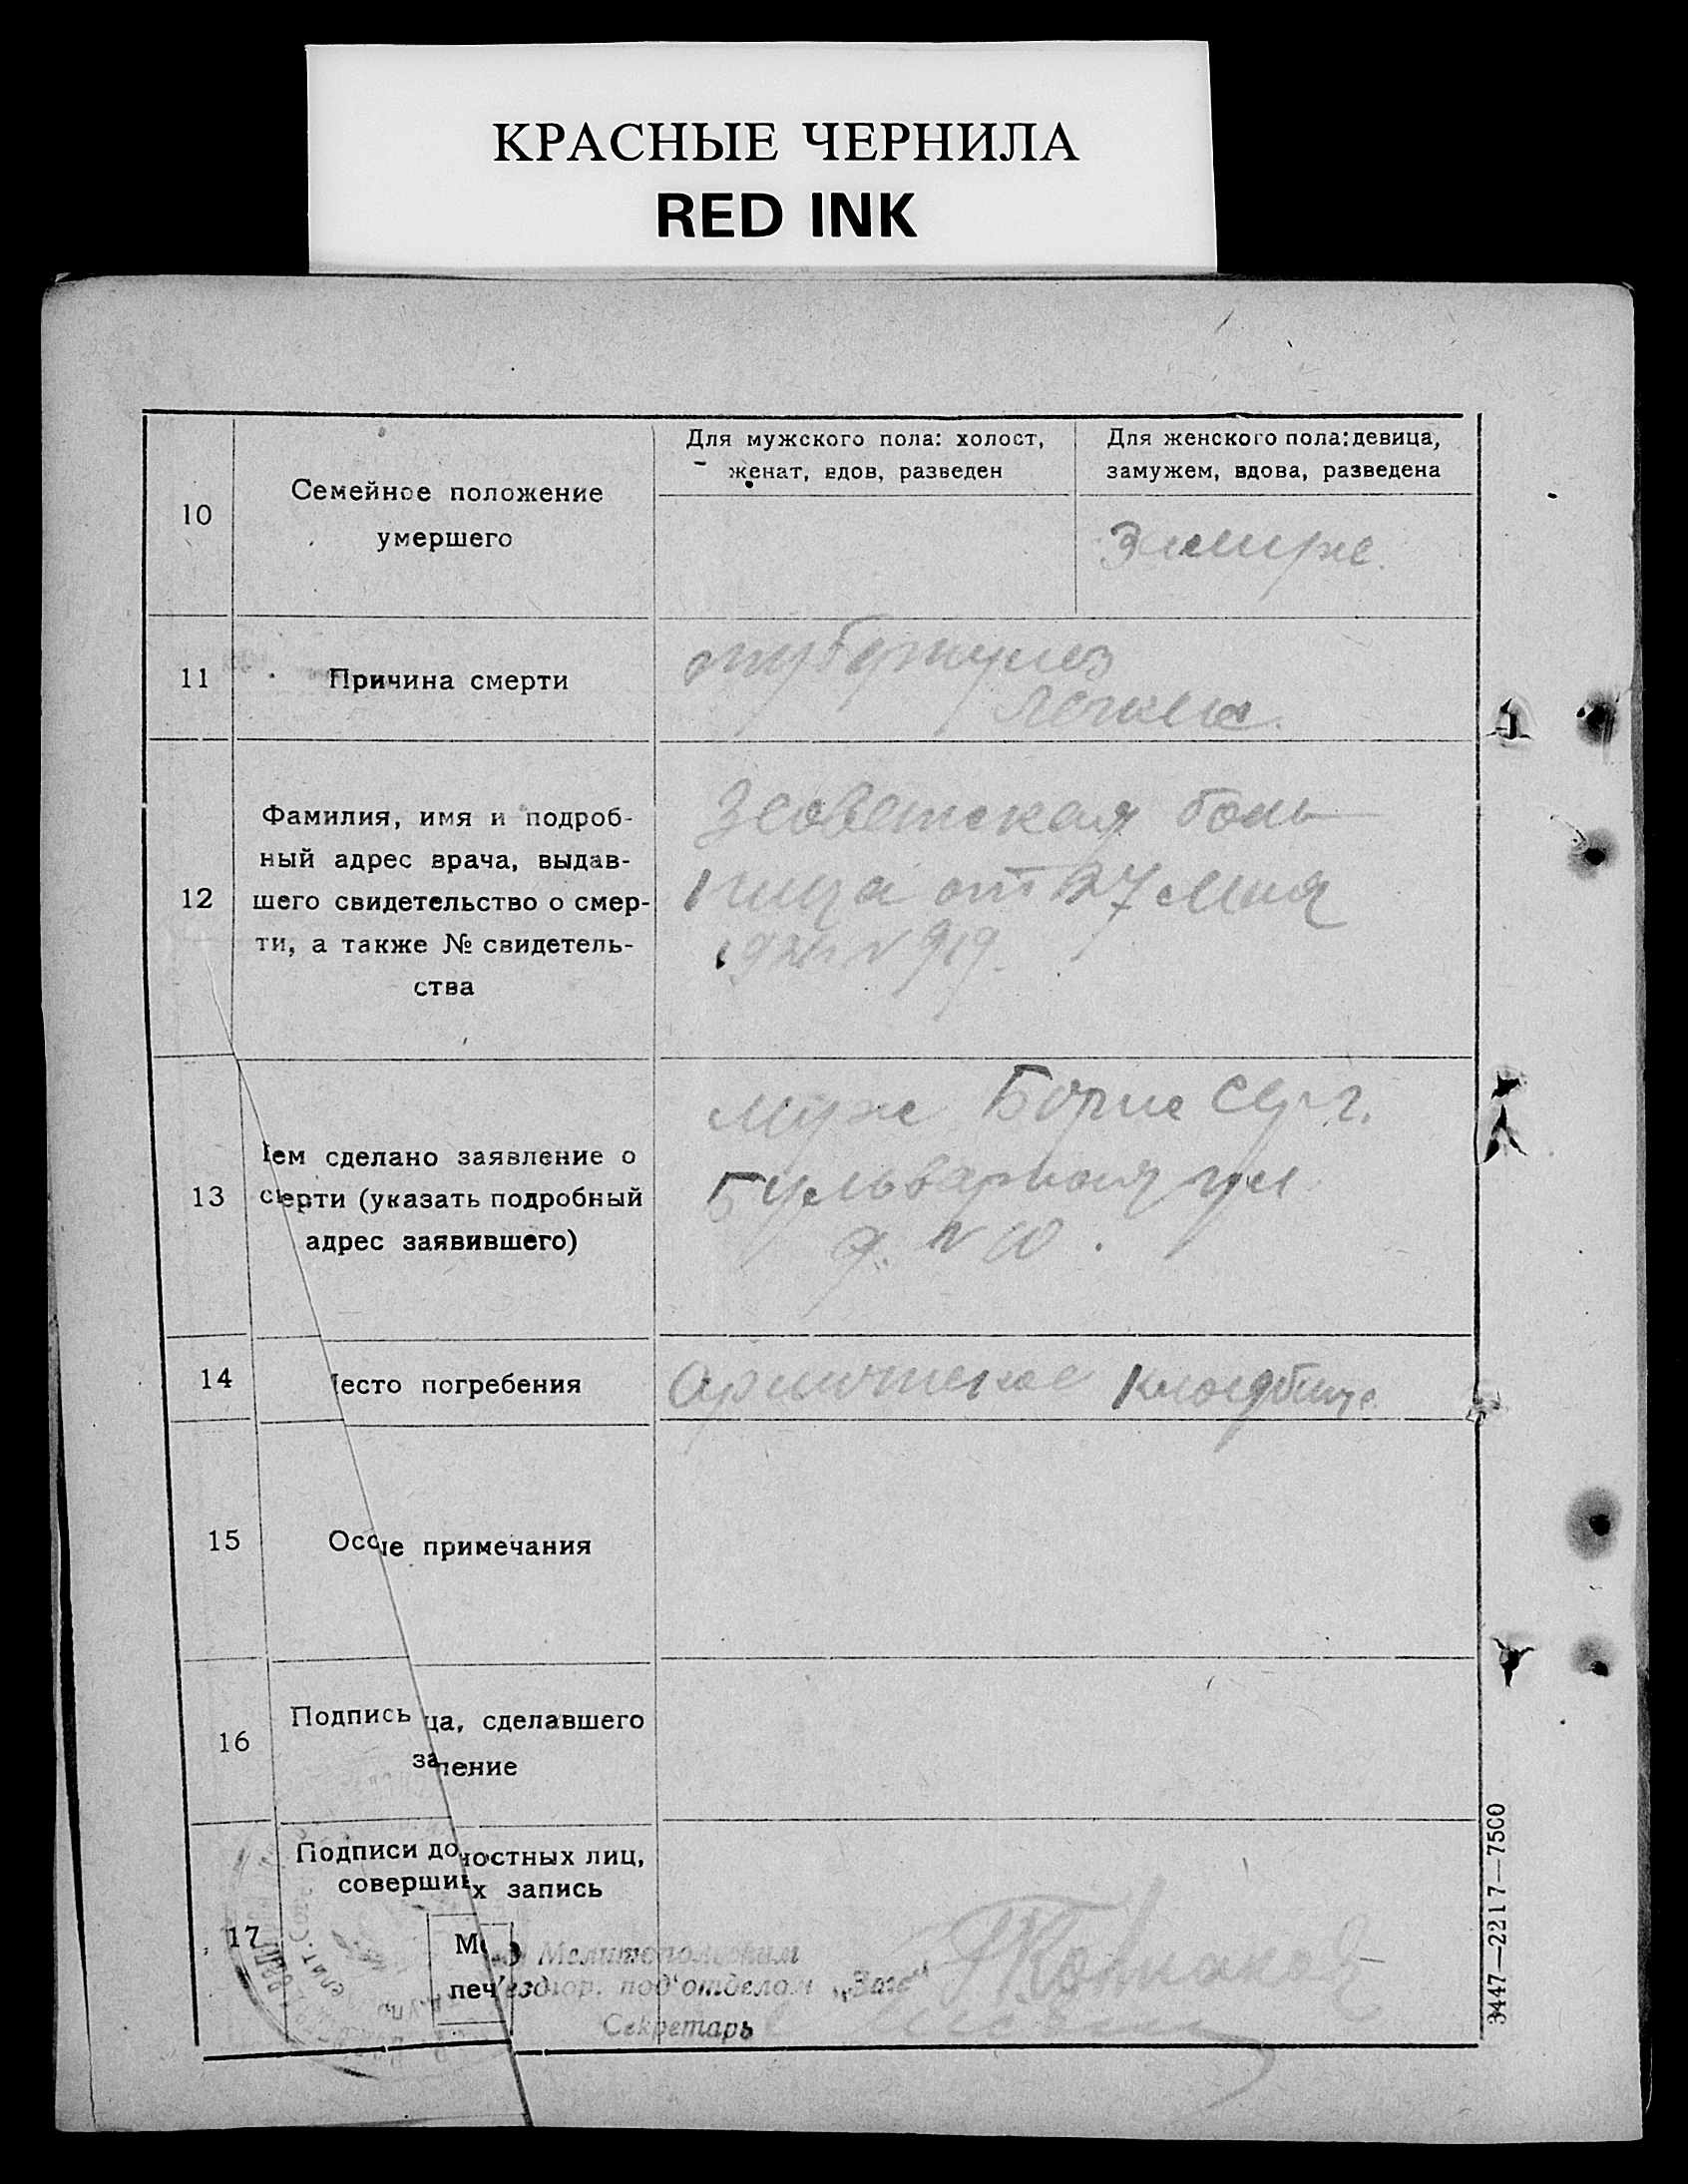 КРАСНЫЕ ЧЕРНИЛА
RED INK
10
Семейное положение
умершего
Для мужского пола: холост,
женат, вдов, разведен
Для женского пола: девица,
замужем, вдова, разведена
Замуже.
11
Причина смерти
туберкулез
легких.
12
Фамилия, имя и подроб-
ный адрес врача, выдав-
шего свидетельство о смер-
ти, а также № свидетель-
ства
3 советская боль
ница от 27 мая
N 919.
13
ем сделано заявление о
с ерти (указать подробный
адрес заявившего)
муж Борис Серг.
Бульварная ул
д. N 10.
14
есто погребения
кладбище
15
Осо ые примечания
16
Подпись ца, сделавшего
за ление
17
Подписи до ностных лиц,
соверши х запись
М
печ
Мелитопольским
уездюр. под'отделом „Загс"
Секретарь
3447—2217—7500